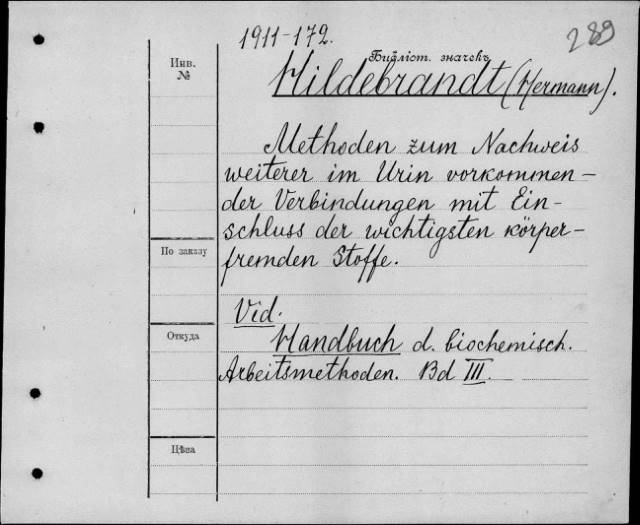 1911-172.
289
Инв.
№
Библіот. значекъ
Hildebrandt (Hermann).
Methoden zum Nachweis
weiterer im Urin vorkommen-
der Verbindungen mit Ein-
schluss der wichtigsten körper-
fremden Stoffe.
По заказу
Vid.
Откуда
Handbuch d. biochemisch.
Arbeitsmethoden. Bd III.
Цѣна